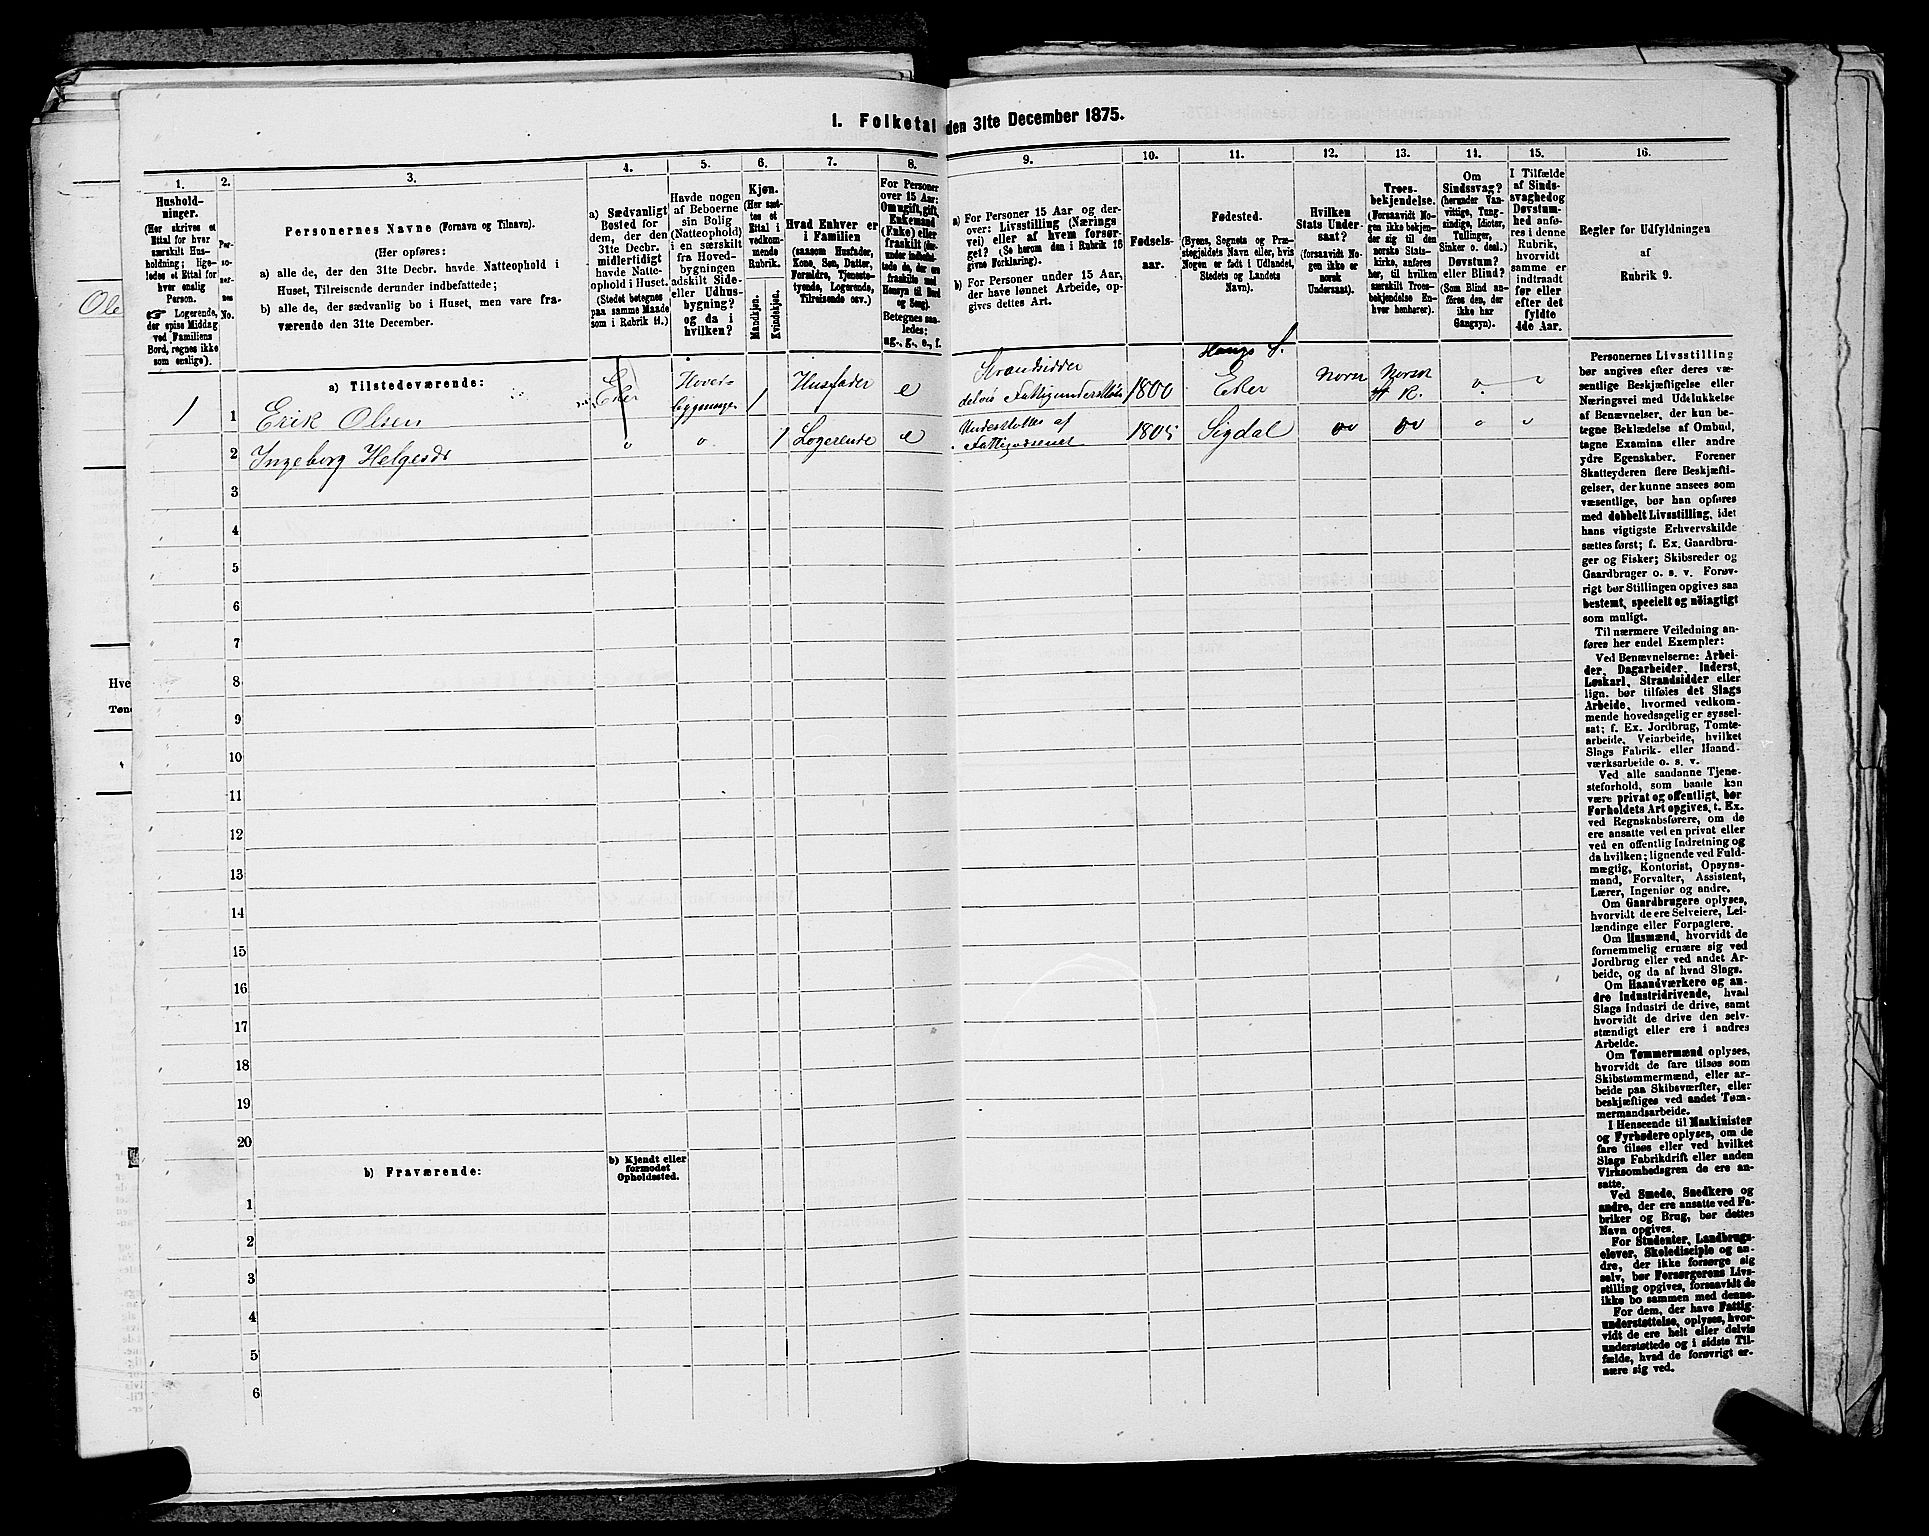 I. Folketal den 31te December 1875.
1.
2.
3.
4.
5.
6.
7.
8.
9.
10.
11.
12.
13.
14.
15.
16.
Hushold-
ninger.
(Her skrives et
Ettal for hver
særskilt Hus-
holdning; lige-
ledes et Ettal for
hver enslig
Person.
☞ Logerende,
der spise Middag
ved Familiens
Bord, regnes ikke
som enslige).
Per-
so-
ner-
nes
No.
Personernes Navne (Fornavn og Tilnavn).
(Her opføres:
a) alle de, der den 31te Decbr. havde Natteophold i
Huset, Tilreisende derunder indbefattede;
b) alle de, der sædvanlig bo i Huset, men vare fra-
værende den 31te December.
a) Sædvanligt
Bosted for
dem, der den
31te Decbr.
midlertidigt
havde Natte-
ophold i Huset.
(Stedet betegnes
paa samme Maade
som i Rubrik 11.)
Havde nogen
af Beboerne
sin Bolig
(Natteophold)
i en særskilt
fra Hoved-
bygningen
adskilt Side-
eller Udhus-
bygning?
og da i
hvilken?
Kjøn.
(Her sæt-
tes et
Ettal i
vedkom-
mende
Rubrik.
Mandkjøn.
Kvindekjøn.
Hvad Enhver er
i Familien
(saasom Husfader,
Kone, Søn, Datter,
Forældre, Tjeneste-
tyende, Logerende,
Tilreisende osv.)
For Personer
over 15 Aar:
Om ugift, gift,
Enkemand
(Enke) eller
fraskilt (der-
under indbefat-
tede de, der ere
fraskilte med
Hensyn til Bord
og Seng).
Betegnes saa-
ledes:
ug., g., e., f.
a) For Personer 15 Aar og der-
over: Livsstilling (Nærings-
vei) eller af hvem forsør-
get? (Se herom den i Rubrik 16
givne Forklaring).
b) For Personer under 15 Aar,
der have lønnet Arbeide, op-
givs dettes Art.
Fødsels-
aar.
Fødested.
(Byens, Sognets og Præ-
stegjeldets Navn eller, hvis
Nogen er født i Udlandet,
Stedets og Landets
Navn).
Hvilken
Stats Under-
saat?
(forsaavidt No-
gen ikke er
norsk
Undersaat).
Troes-
bekjendelse.
(Forsaavidt No-
gen ikke bekjen-
der sig til den
norske Stats-
kirke, anføres
her, til hvilken
særskilt Troes-
bekjendelse En-
hver henhører).
Om
Sindssvag?
(herunder Van-
vittige, Tung-
sindige, Idioter,
Tullinger,
Sinker o. desl.)
Døvstum?
eller Blind?
(Som Blind an-
føres den, der
ikke har
Gangsyn).
I Tilfælde
af Sinds-
svaghed og
Døvstum-
hed anfø-
res i denne
Rubrik,
hvorvidt
samme er
indtraadt
før eller
efter det
fyldte
4de Aar.
Regler for Udfyldningen
af
Rubrik 9.
a) Tilstedeværende:
1 1 Erik Olsen Eker Hoved-bygningen 1 Husfader e Strandsidder delvis Fattigunderstøttet 1800 Haugs S. Eker Norsk Norsk K. o
2 Ingeborg Helgesdr o o 1 Logerende e Understøttes af Fattigvæsenet 1805 Sigdal o o
3
4
5
6
7
8
9
10
11
12
13
14
15
16
17
18
19
20
b) Fraværende:
b) Kjendt eller
formodet
Opholdssted.
1
2
3
4
5
6
Personernes Livsstilling
bør angives efter deres væ-
sentlige Beskjæftigelse eller
Næringsvei med Udelukkelse
af Benævnelser, der kun be-
tegne Beklædelse af Ombud,
tagne Examina eller andre
ydre Egenskaber. Forener
Skatteyderen flere Beskjæfti-
gelser, der kunne ansees som
væsentlige, bør han opføres
med dobbelt Livsstilling, idet
hans vigtigste Erhvervskilde
sættes først; f. Ex. Gaardbru-
ger og Fisker; Skibsreder og
Gaardbruger o. s. v. Forøv-
rigt bør Stillingen opgives saa
bestemt, specielt og nøiagtigt
som muligt.
Til nærmere Veiledning an-
føres her endel Exempler:
Ved Benævnelserne: Arbei-
der, Dagarbeider, Inderst,
Løskarl, Strandsidder eller
lign. bør tilføies det Slags
Arbeide, hvormed vedkom-
mende hovedsagelig er syssel-
sat; f. Ex. Jordbrug, Tomte-
arbeide, Veiarbeide, hvilket
Slags Fabrik- eller Haand-
værksarbeide o. s. v.
Ved alle saadanne Tjene-
steforhold, som baade kan
være privat og offentligt, bør
Forholdets Art opgives, t. Ex.
ved Regnskabsførere, om de
ere ansatte ved en privat eller
ved en offentlig Indretning og
da hvilken; lignende ved Fuld-
mægtig, Kontorist, Opsyns-
mand, Forvalter, Assistent,
Lærer, Ingeniør og andre.
Om Gaardbrugere oplyses,
hvorvidt de ere Selveiere, Lei-
lændinge eller Forpagtere.
Om Husmænd, hvorvidt de
fornemmelig ernære sig ved
Jordbrug eller ved andet Ar-
beide, og da af hvad Slags.
Om Haandværkere og an-
dre Industridrivende, hvad
Slags Industri de drive, samt
hvorvidt de drive den selv-
stændigt eller ere i andres
Arbeide.
Om Tømmermænd oplyses,
hvorvidt de fare tilsøs som
Skibstømmermænd, eller ar-
beide paa Skibsværfter, eller
beskjæftiges ved andet Tøm-
mermandsarbeide.
I Henseende til Maskinister
og Fyrbødere oplyses, om de
fare tilsøs eller ved hvilket
Slags Fabrikdrift eller anden
Virksomhedsgren de ere an-
satte.
Ved Smede, Snedkere og
andre, der ere ansatte ved Fa-
briker og Brug, bør dettes
Navn opgives.
For Studenter, Landbrugs-
elever, Skoledisciple og an-
dre, der ikke forsørge sig
selv, bør Forsørgerens Livs-
stilling opgives, forsaavidt de
ikke bo sammen med denne.
For dem, der have Fattig-
understøttelse, oplyses, hvor-
vidt de ere helt eller delvis
understøttede og i sidste Til-
fælde, hvad de forøvrigt er-
nære sig ved.
Ole
Hve
Tønd